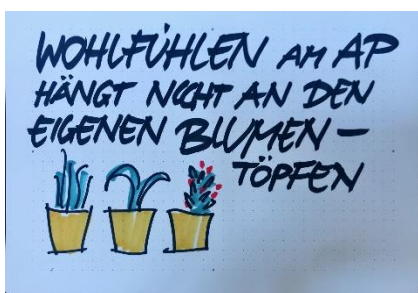 WOHLFÜHLEN AM AP
HÄNGT NICHT AN DEN
EIGENEN BLUMEN –
TÖPFEN